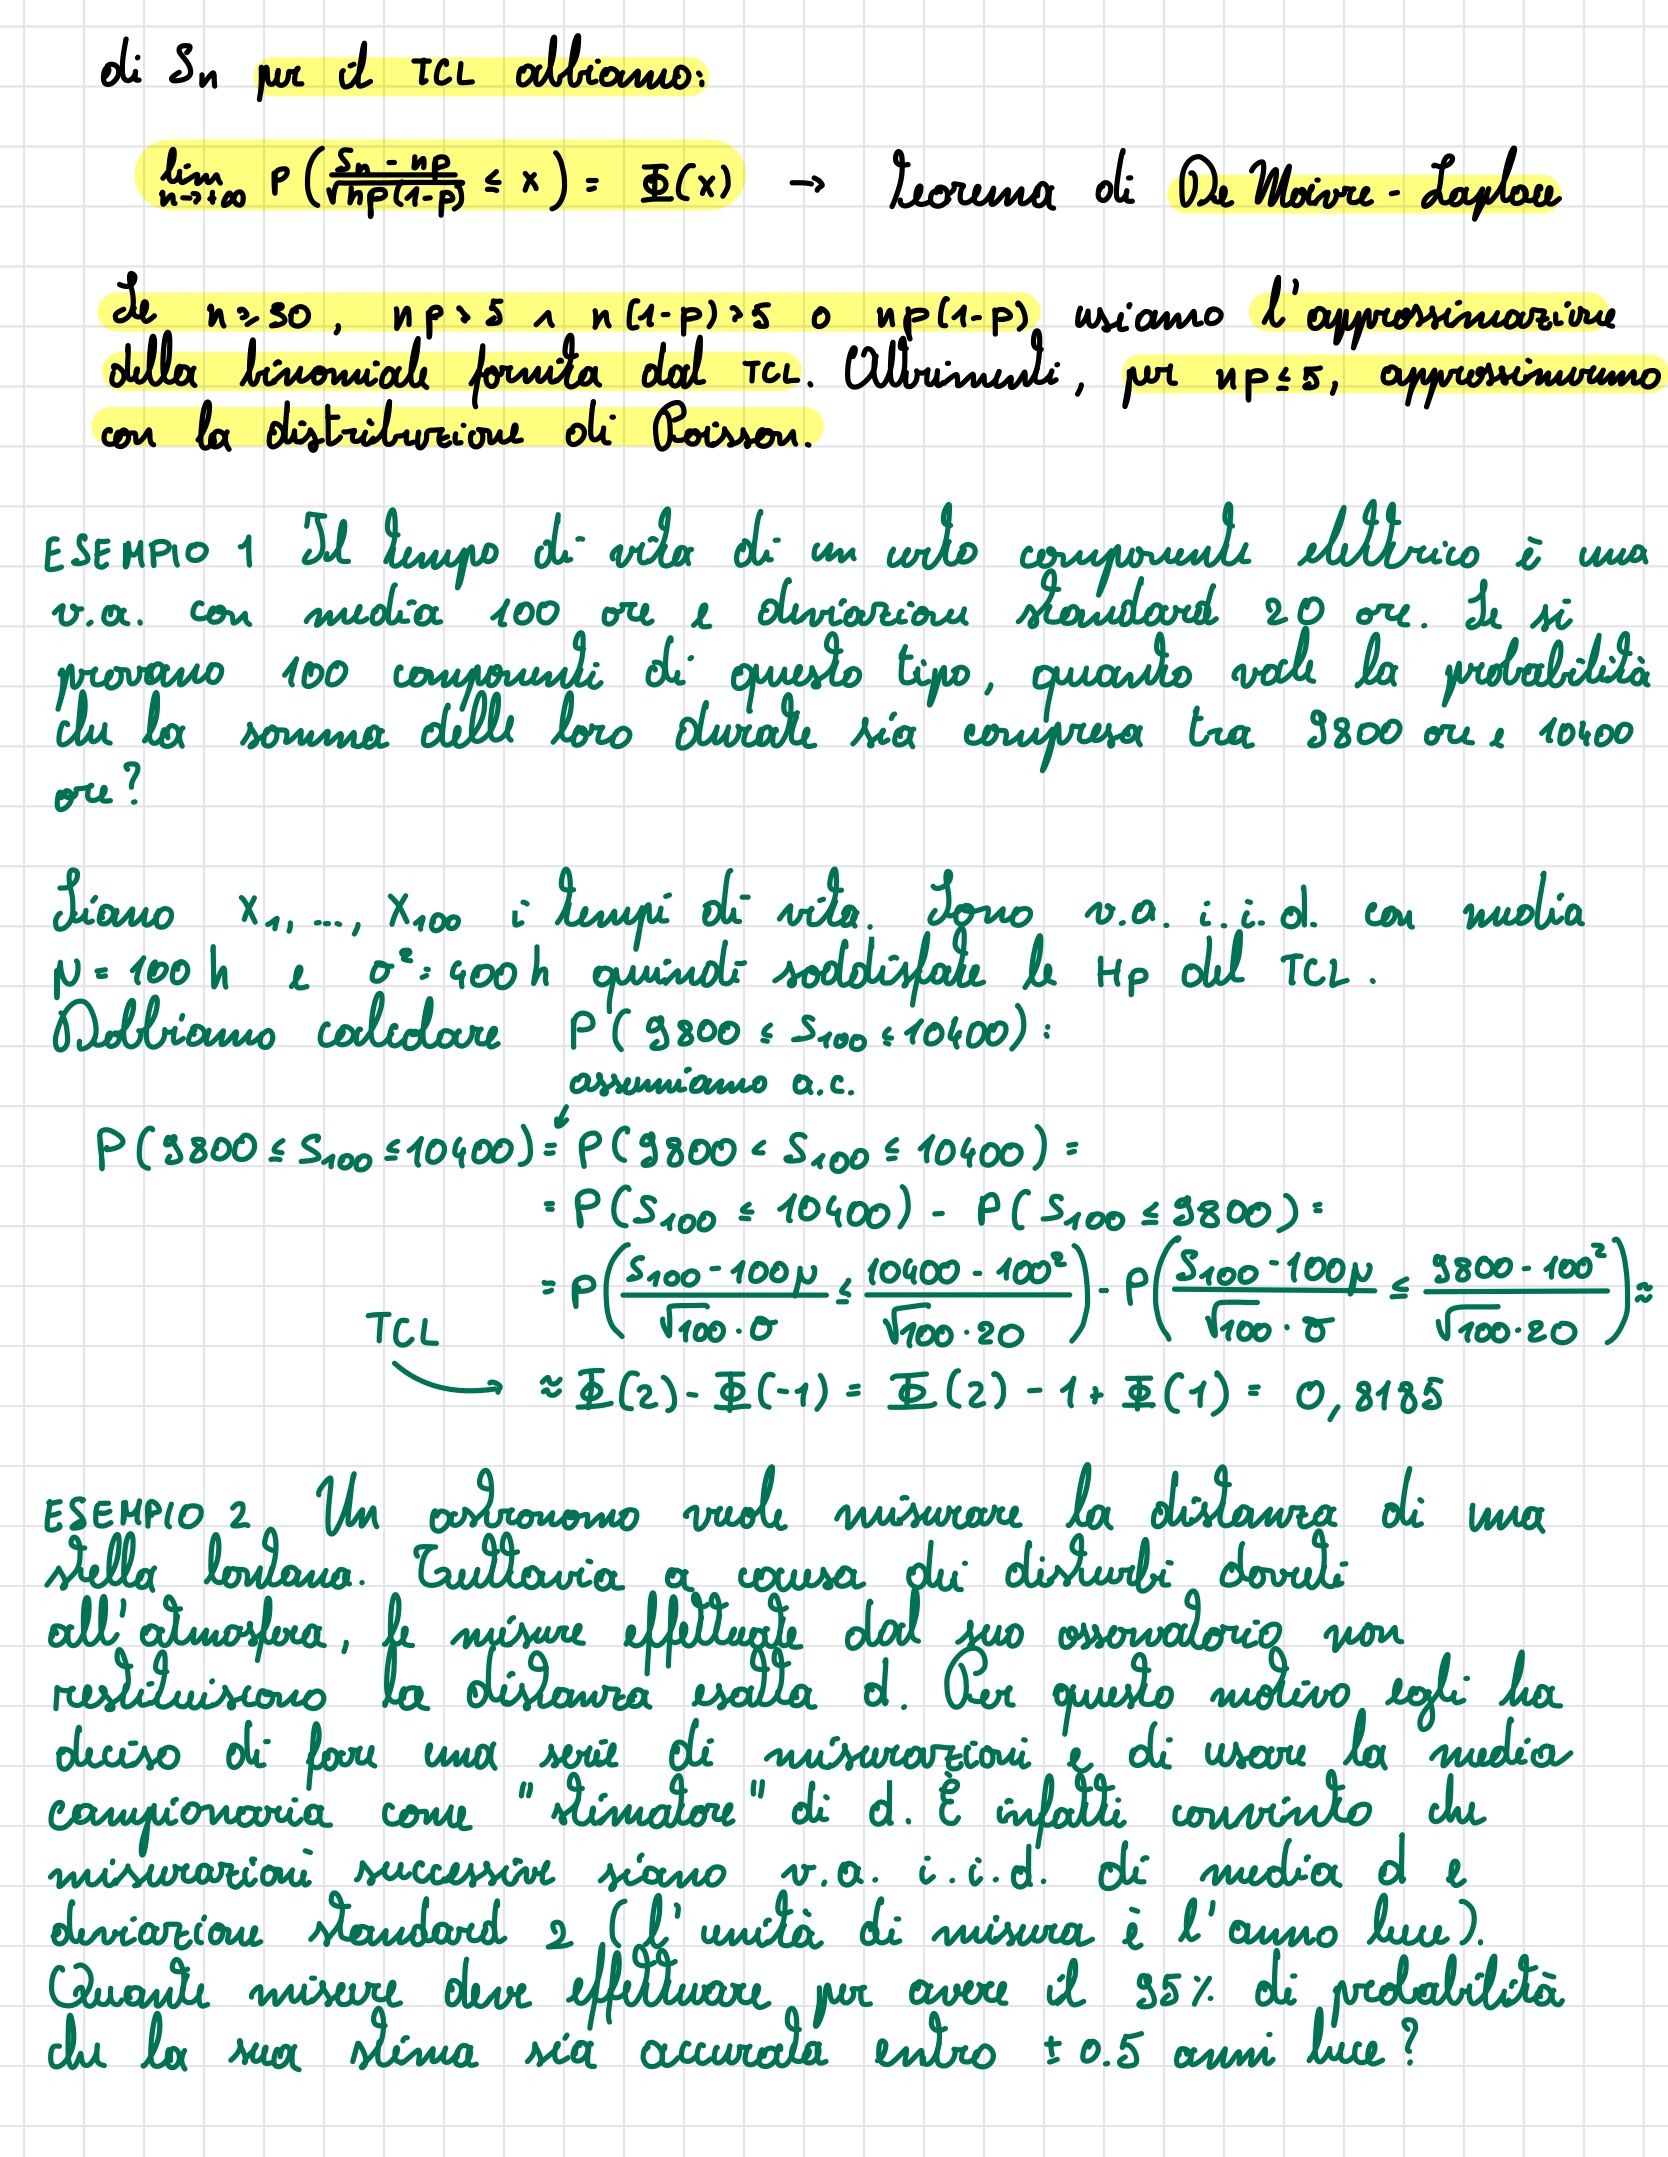 di Sn per il TCL abbiamo:
lim n→+∞ P( (Sn - np)/√(np(1-p)) ≤ x ) = Φ(x) → Teorema di De Moivre - Laplace
Se n ≥ 30, np > 5 ∧ n(1-p) > 5 o np(1-p) usiamo l'approssimazione
della binomiale fornita dal TCL. Altrimenti, per np ≤ 5, approssimiamo
con la distribuzione di Poisson.
ESEMPIO 1 Il tempo di vita di un certo componente elettrico è una
v.a. con media 100 ore e deviazione standard 20 ore. Se si
provano 100 componenti di questo tipo, quanto vale la probabilità
che la somma delle loro durate sia compresa tra 9800 ore e 10400
ore?
Siano X₁, ..., X₁₀₀ i tempi di vita. Sono v.a. i.i.d. con media
μ = 100 h e σ² = 400 h quindi soddisfate le Hp del TCL.
Dobbiamo calcolare P( 9800 ≤ S₁₀₀ ≤ 10400) :
assumiamo a.c.
P( 9800 ≤ S₁₀₀ ≤ 10400) = P( 9800 < S₁₀₀ ≤ 10400) =
= P( S₁₀₀ ≤ 10400) - P( S₁₀₀ ≤ 9800) =
= P( (S₁₀₀ - 100μ)/(√100 · σ) ≤ (10400 - 100²)/(√100 · 20) ) - P( (S₁₀₀ - 100μ)/(√100 · σ) ≤ (9800 - 100²)/(√100 · 20) ) ≈
TCL
≈ Φ(2) - Φ(-1) = Φ(2) - 1 + Φ(1) = 0,8185
ESEMPIO 2 Un astronomo vuole misurare la distanza di una
stella lontana. Tuttavia a causa dei disturbi dovuti
all'atmosfera, le misure effettuate dal suo osservatorio non
restituiscono la distanza esatta d. Per questo motivo egli ha
deciso di fare una serie di misurazioni e di usare la media
campionaria come "stimatore" di d. È infatti convinto che
misurazioni successive siano v.a. i.i.d. di media d e
deviazione standard 2 (l'unità di misura è l'anno luce).
Quante misure deve effettuare per avere il 95% di probabilità
che la sua stima sia accurata entro ± 0.5 anni luce?